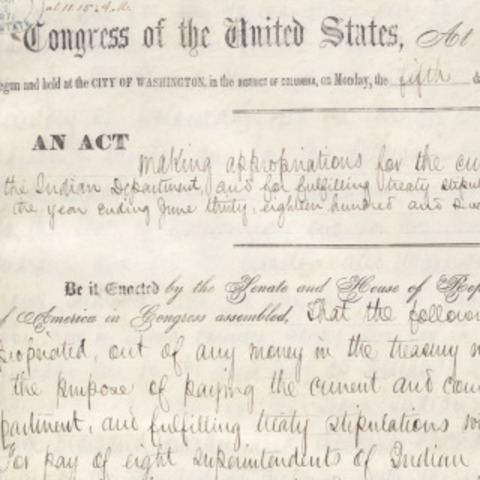 Jul 11. 15 & 4. M.
Congress of the United States, At
egun and held at the CITY OF WASHINGTON, in the DISTRICT OF COLUMBIA, on Monday, the fifth d
AN ACT
making appropriations for the cu
the Indian Department, and for fulfilling treaty stipul
the year ending June thirty, eighteen hundred and
Be it Enacted by the Senate and House of Rep
of America in Congress assembled, That the follow
propriated, out of any money in the treasury
the purpose of paying the current and con
partment, and fulfilling treaty stipulations
For pay of eight superintendents of Indian